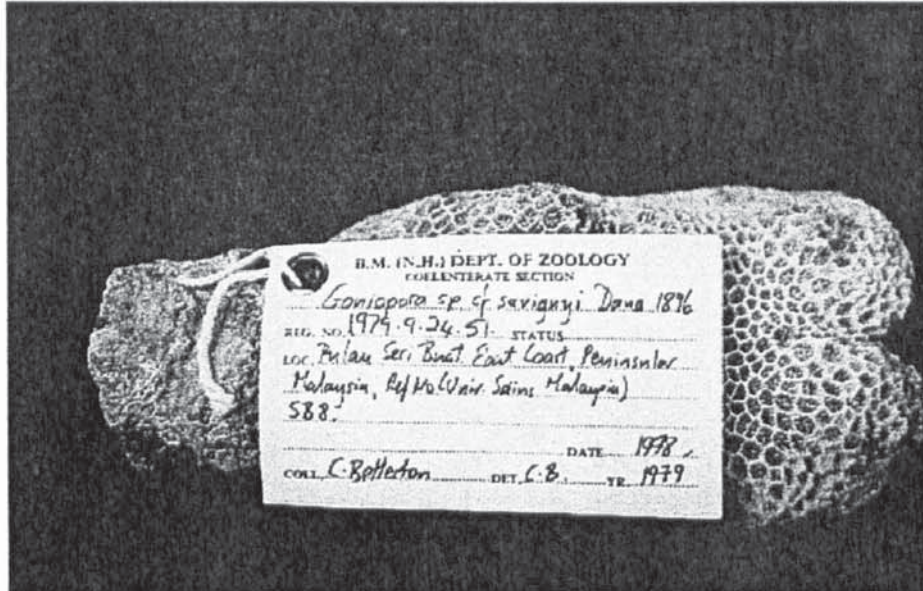 B.M. (N.H.) DEPT. OF ZOOLOGY
COELENTERATE SECTION
Goniopora sp. cf savignyi Dana 1896
REG. NO. 1979.9.24.51. STATUS
LOC. Pulau Seri Buat East Coast, Peninsular
Malaysia, Ref No (Univ. Sains Malaysia)
SB8.
DATE 1978
COLL. C. Betterton DET. C.B. YR. 1979